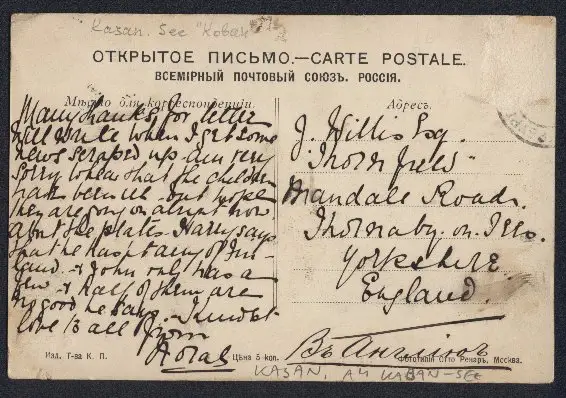 Kasan. See "Kaban"
ОТКРЫТОЕ ПИСЬМО.—CARTE POSTALE.
ВСЕМІРНЫЙ ПОЧТОВЫЙ СОЮЗЪ. РОССІЯ.
Мѣсто для корреспонденціи.
Many thanks for letter
will write when I get some
news scraped up. am very
sorry to hear that the children
have been ill - but hope
they are going on alright now
about the plates Harry says
that he hasn't any of Fin-
land & John only has a
few & half of them are
no good he says. Kindest
love to all from
Адресъ.
J. Willis Esq.
"Thornfields"
Mandale Road.
Thornaby. on. Tees.
Yorkshire.
England.
Въ Англію
Изд. Т-ва К. П.
Цѣна 5 коп.
Фототипія Отто Ренаръ, Москва.
KASAN, AM KABAN-SEE